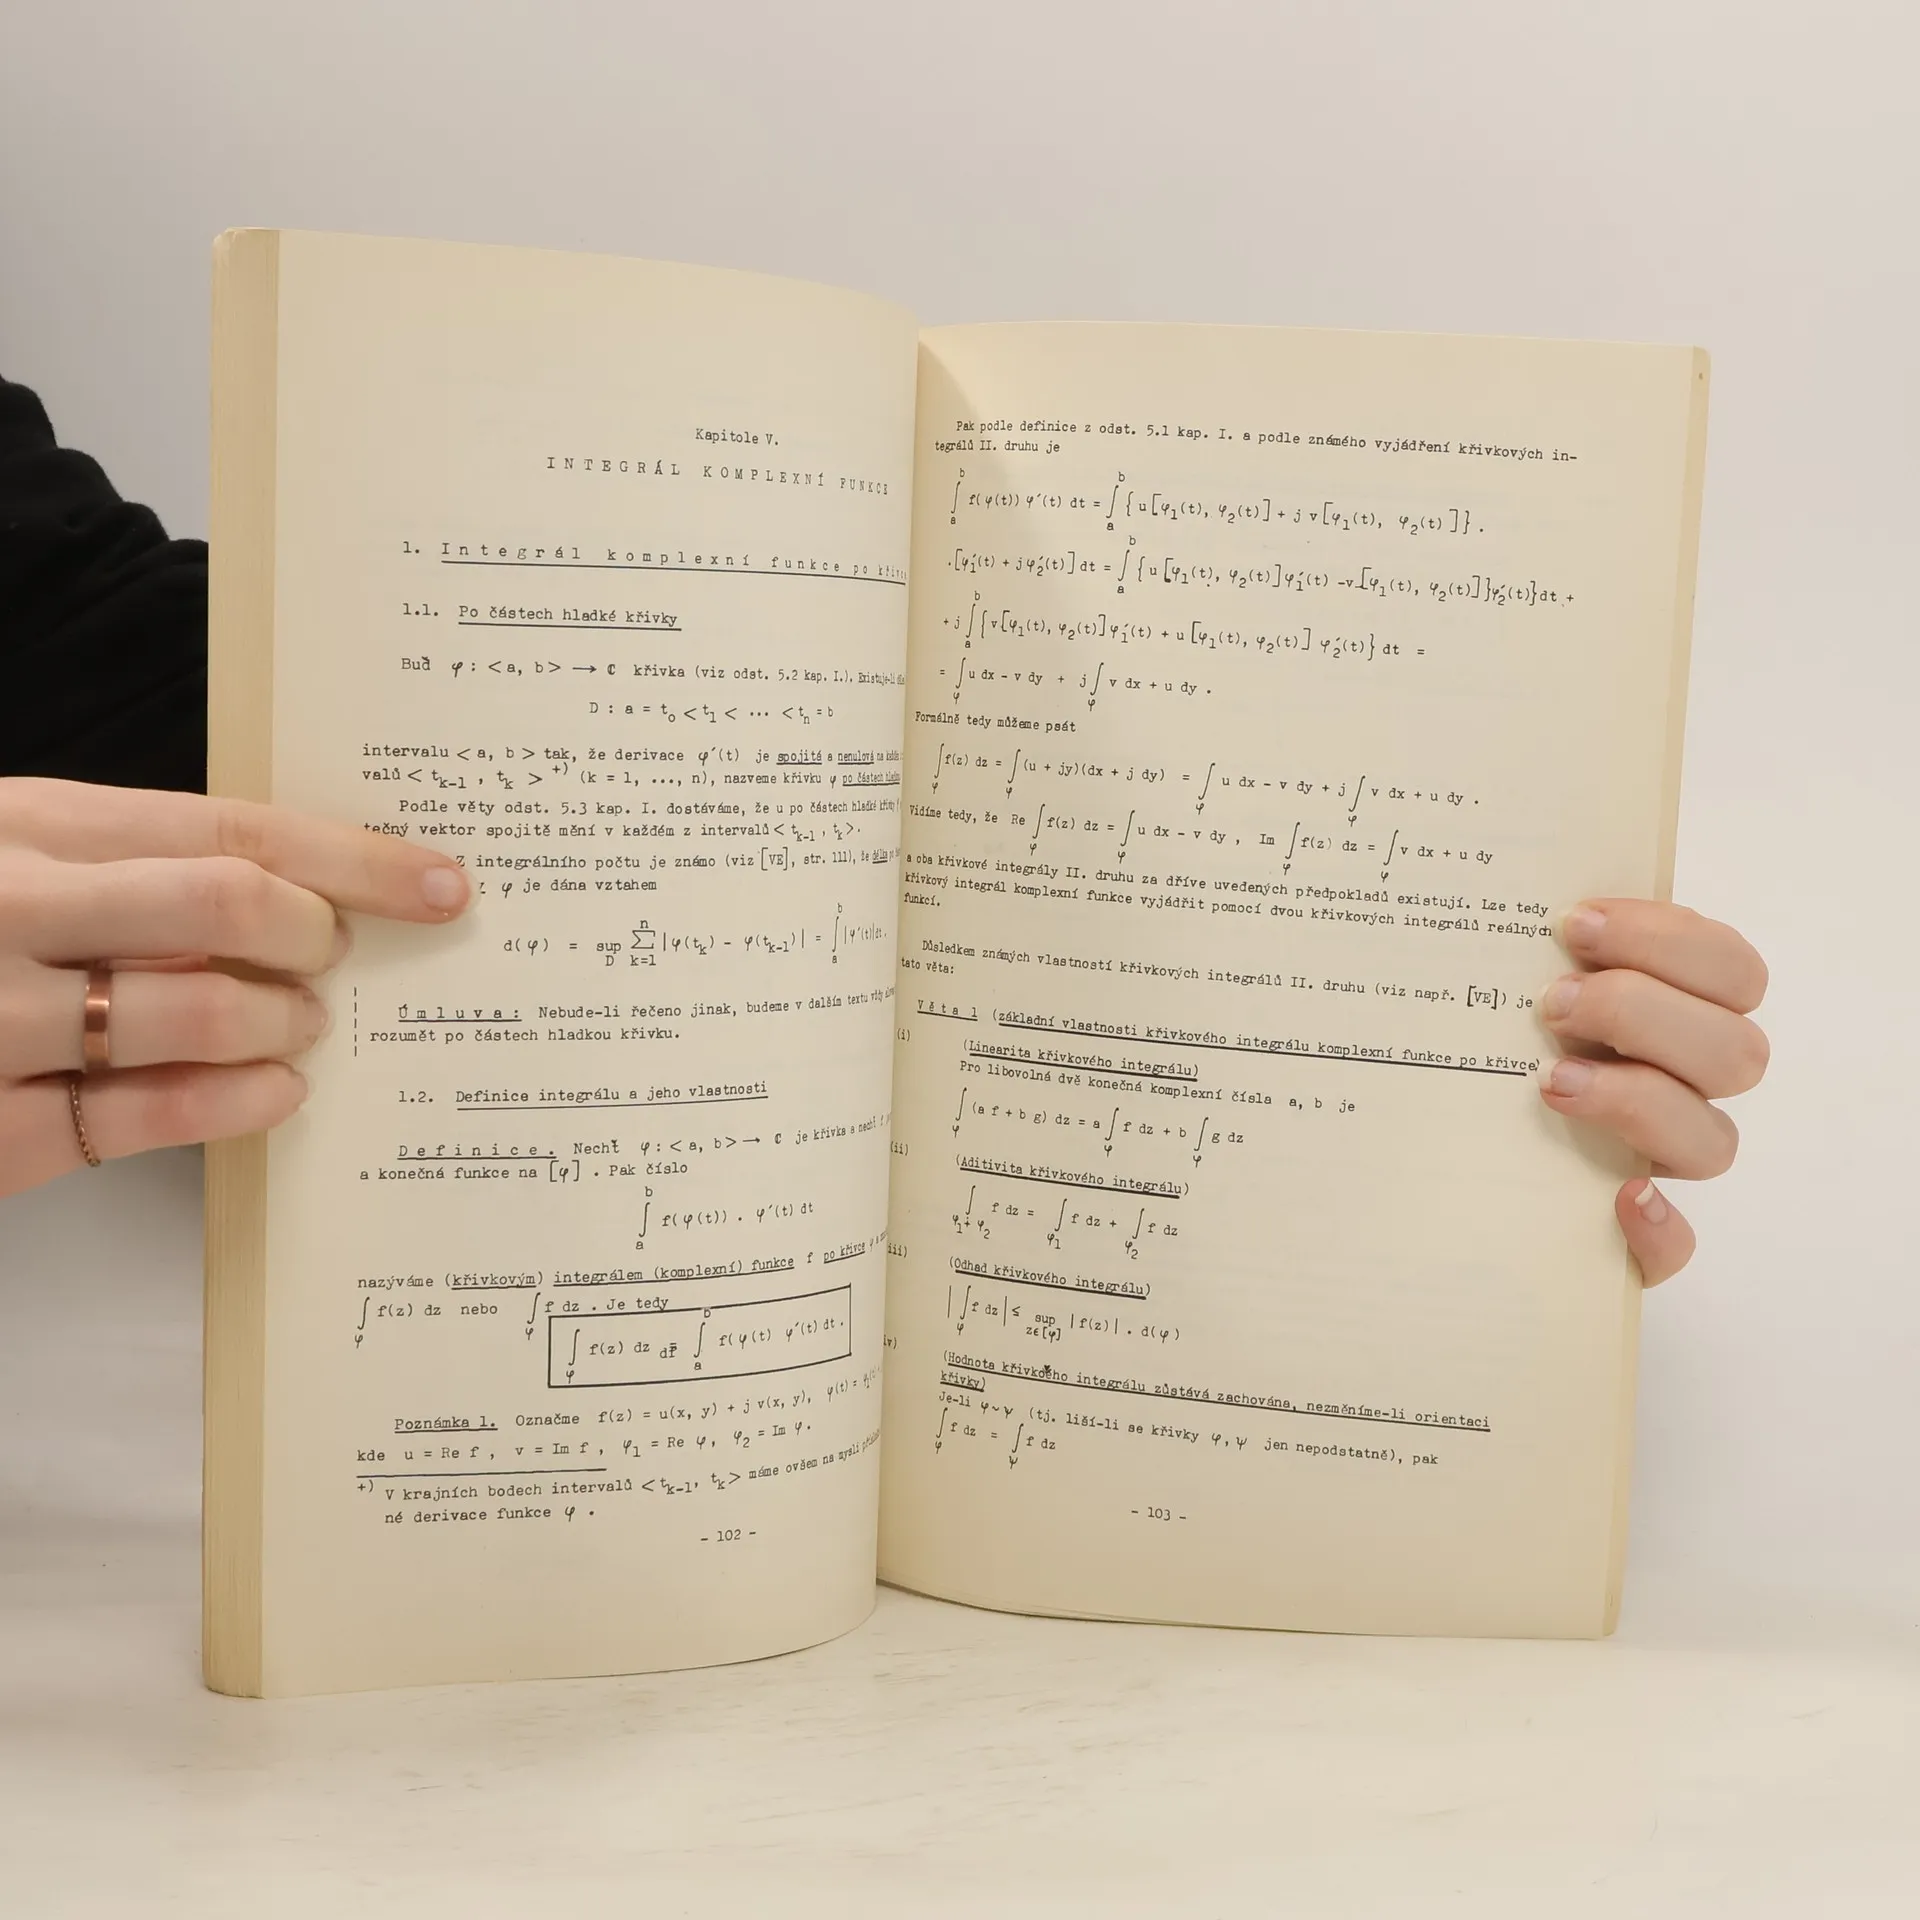 Kapitole V.
INTEGRÁL KOMPLEXNÍ FUNKCE
1. Integrál komplexní funkce po
1.1. Po částech hladké křivky
Buď φ : <a, b> ⟶ ℂ křivka (viz odst. 5.2 kap. I.). Existuje-li
D : a = t₀ < t₁ < ... < tₙ = b
intervalu <a, b> tak, že derivace φ´(t) je spojitá a nenulová na
valů < tₖ₋₁ , tₖ > ⁺⁾ (k = 1, ..., n), nazveme křivku φ po částech
Podle věty odst. 5.3 kap. I. dostáváme, že u po částech hladké
tečný vektor spojitě mění v každém z intervalů < tₖ₋₁ , tₖ >.
Z integrálního počtu je známo (viz [VE], str. 111), že délka
φ je dána vztahem
d(φ) = sup_D ∑_{k=1}^{n} |φ(tₖ) - φ(tₖ₋₁)| = ∫_a^b |φ´(t)|dt.
Úmluva: Nebude-li řečeno jinak, budeme v dalším textu vždy
rozumět po částech hladkou křivku.
1.2. Definice integrálu a jeho vlastnosti
Definice. Nechť φ : <a, b> ⟶ ℂ je křivka a nechť f
a konečná funkce na [φ] . Pak číslo
∫_a^b f(φ(t)) . φ´(t) dt
nazýváme (křivkovým) integrálem (komplexní) funkce f po křivce φ
∫_φ f(z) dz nebo ∫_φ f dz . Je tedy
∫_φ f(z) dz d̄f̄ ∫_a^b f(φ(t) φ´(t) dt .
Poznámka 1. Označme f(z) = u(x, y) + j v(x, y), φ(t) =
kde u = Re f , v = Im f , φ₁ = Re φ, φ₂ = Im φ.
+) V krajních bodech intervalů < tₖ₋₁, tₖ > máme ovšem na mysli
né derivace funkce φ .
- 102 -
Pak podle definice z odst. 5.1 kap. I. a podle známého vyjádření křivkových in-
tegrálů II. druhu je
∫_a^b f(φ(t)) φ´(t) dt = ∫_a^b {u[φ₁(t), φ₂(t)] + j v[φ₁(t), φ₂(t)]} .
.[φ₁´(t) + jφ₂´(t)]dt = ∫_a^b {u[φ₁(t), φ₂(t)]φ₁´(t) -v[φ₁(t), φ₂(t)]}φ₂´(t)}dt +
+ j ∫_a^b {v[φ₁(t), φ₂(t)]φ₁´(t) + u[φ₁(t), φ₂(t)] φ₂´(t)} dt =
= ∫_φ u dx - v dy + j ∫_φ v dx + u dy .
Formálně tedy můžeme psát
∫_φ f(z) dz = ∫_φ (u + jv)(dx + j dy) = ∫_φ u dx - v dy + j ∫_φ v dx + u dy .
Vidíme tedy, že Re ∫_φ f(z) dz = ∫_φ u dx - v dy , Im ∫_φ f(z) dz = ∫_φ v dx + u dy
a oba křivkové integrály II. druhu za dříve uvedených předpokladů existují. Lze tedy
křivkový integrál komplexní funkce vyjádřit pomocí dvou křivkových integrálů reálných
funkcí.
Důsledkem známých vlastností křivkových integrálů II. druhu (viz např. [VE]) je
tato věta:
Věta 1 (základní vlastnosti křivkového integrálu komplexní funkce po křivce)
(i) (Linearita křivkového integrálu)
Pro libovolná dvě konečná komplexní čísla a, b je
∫_φ (a f + b g) dz = a ∫_φ f dz + b ∫_φ g dz
(ii) (Aditivita křivkového integrálu)
∫_{φ₁ ∔ φ₂} f dz = ∫_{φ₁} f dz + ∫_{φ₂} f dz
iii) (Odhad křivkového integrálu)
|∫_φ f dz| ≤ sup_{z∈[φ]} |f(z)| . d(φ)
iv) (Hodnota křivkového integrálu zůstává zachována, nezměníme-li orientaci
křivky)
Je-li φ ~ ψ (tj. liší-li se křivky φ, ψ jen nepodstatně), pak
∫_φ f dz = ∫_ψ f dz
- 103 -